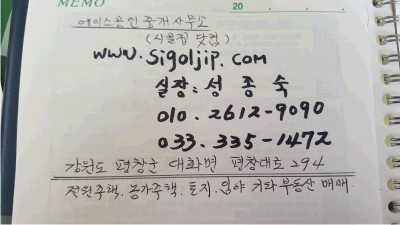 MEMO 20
에이스공인중개사무소
(시골집 닷컴)
www.sigoljip.com
실장: 성종숙
010.2612-9090
033.335-1472
강원도 평창군 대화면 평창대로 294
전원주택.농가주택.토지.임야 기타부동산 매매